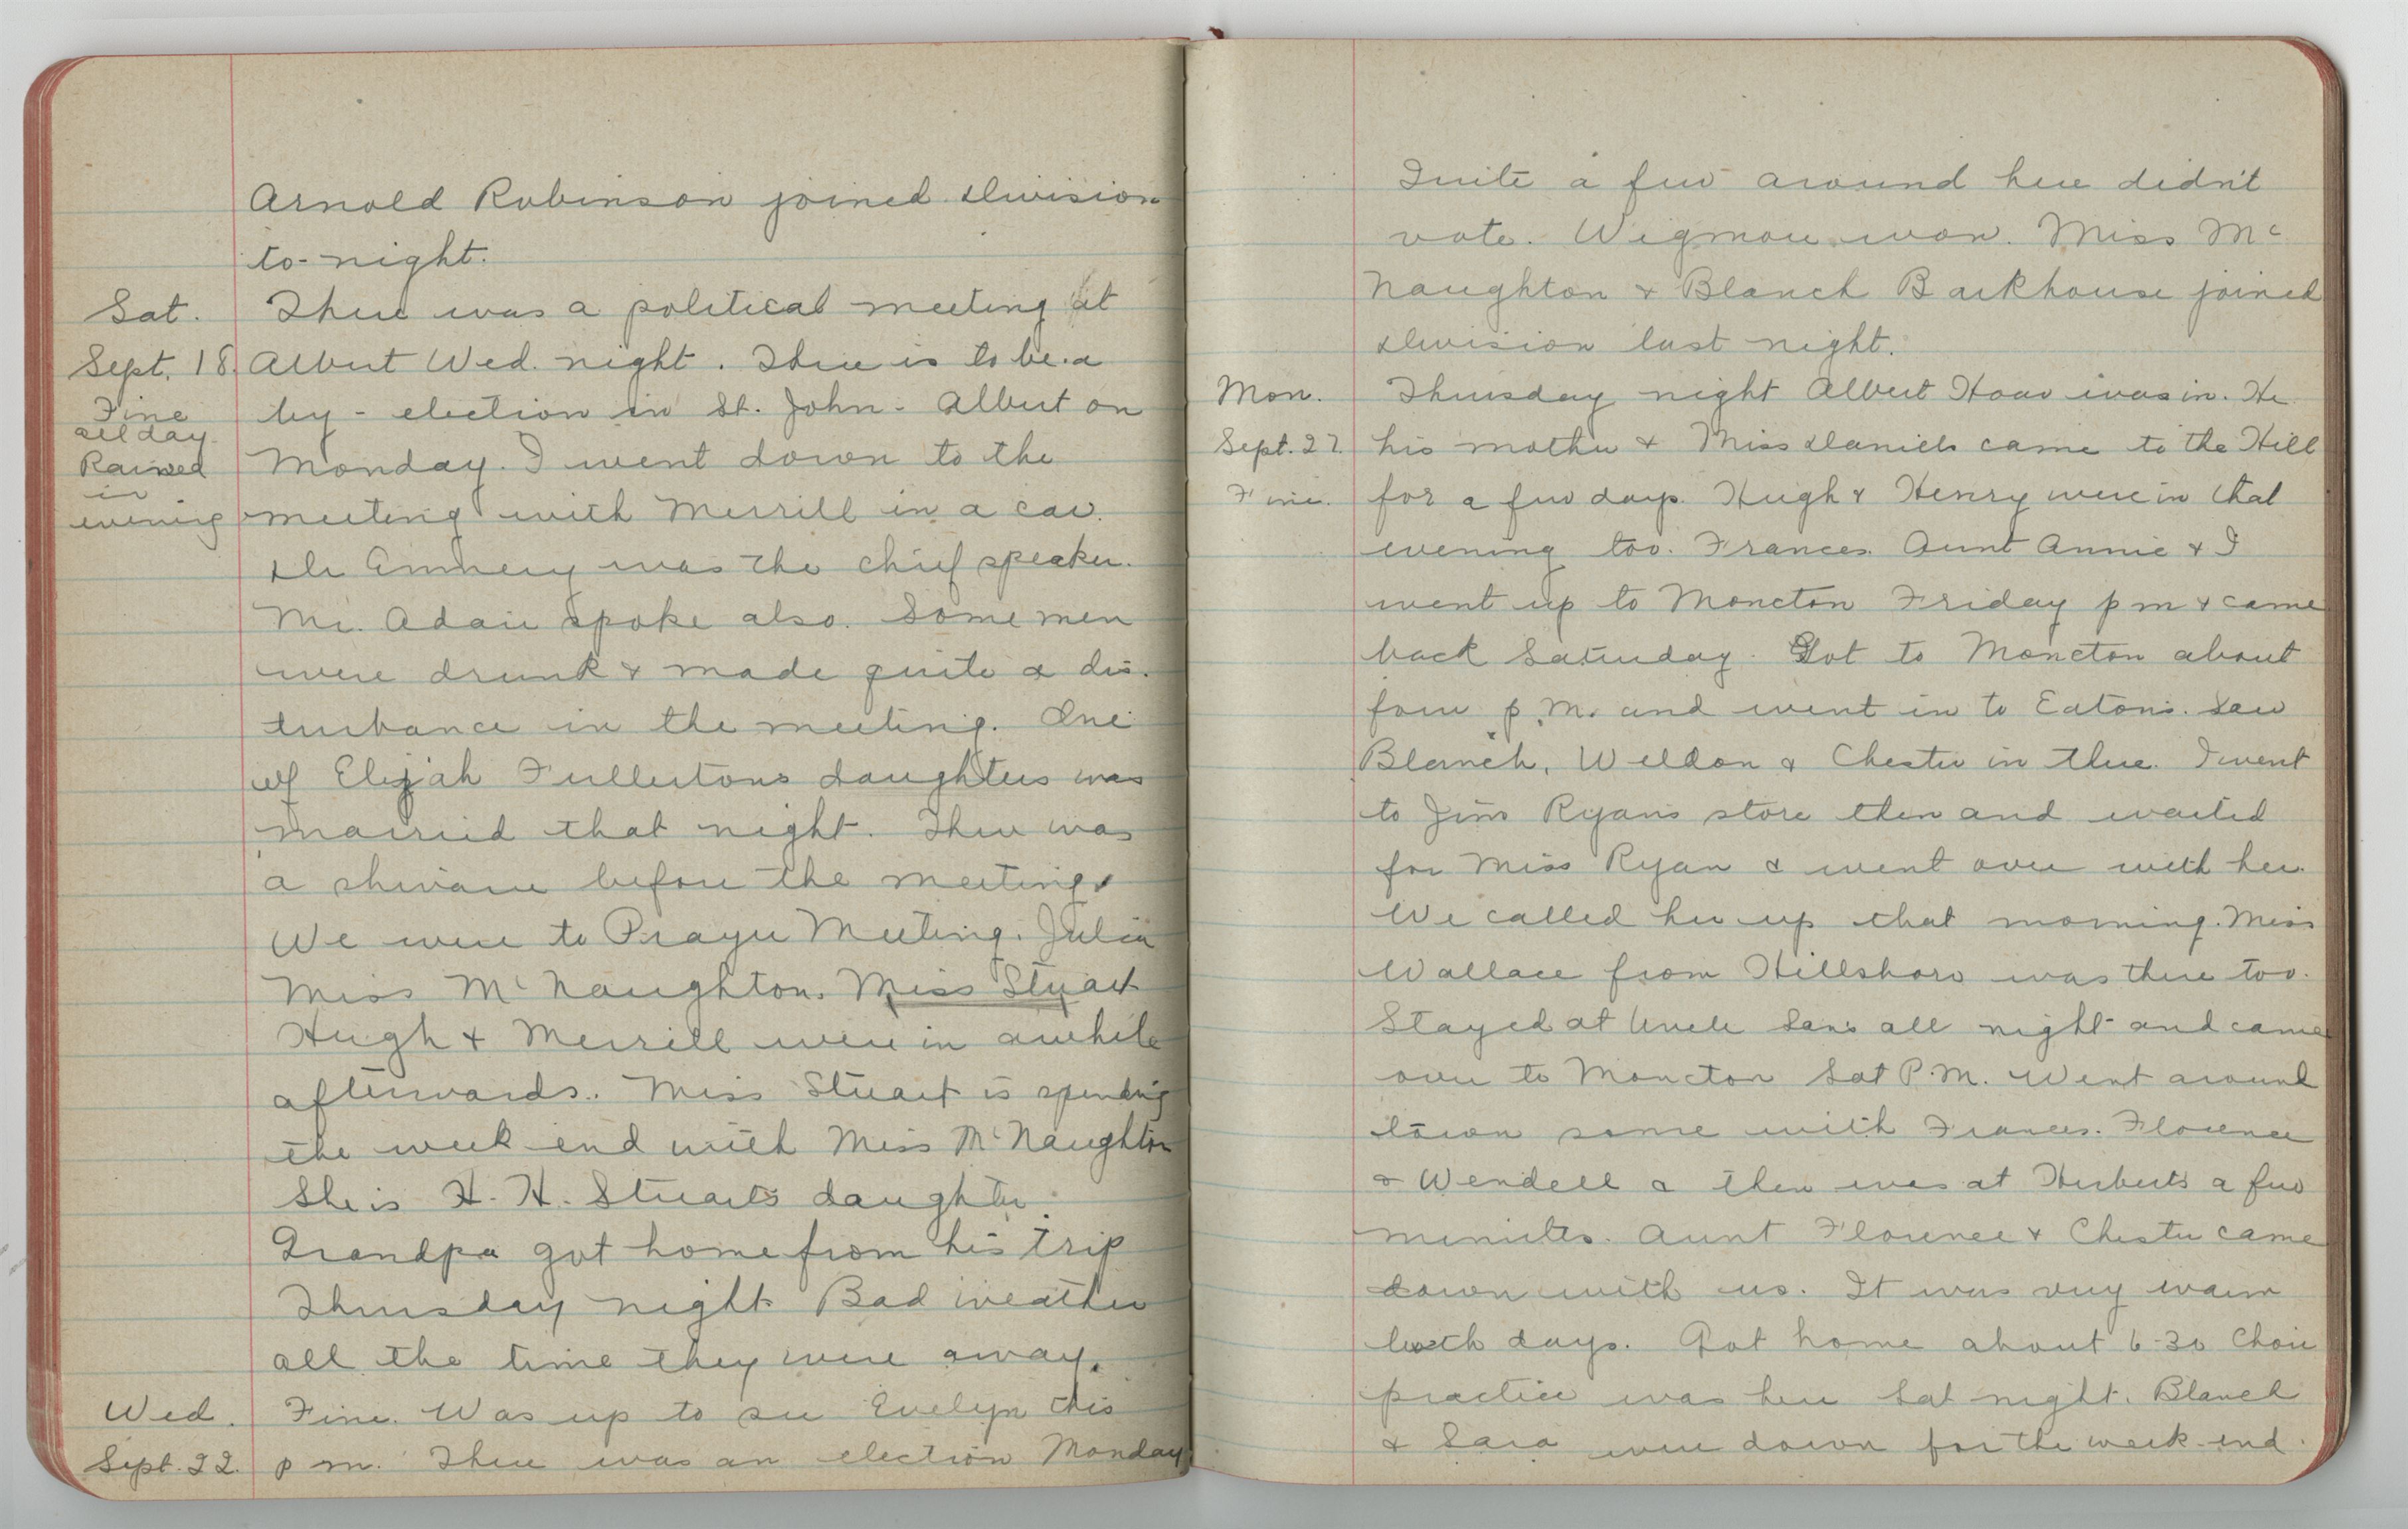 Arnold Robinson joined Division
to-night.
Sat. There was a political meeting at
Sept. 18. Albert Wed. night. There is to be a
Fine by-election in St. John-Albert on
all day.
Rained Monday. I went down to the
in
evening meeting with Merrill in a car.
Dr Emmery was the chief speaker.
Mr. Adair spoke also. Some men
were drunk & made quite a dis-
turbance in the meeting. One
of Elijah Fullertons daughters was
married that night. There was
a shivaree before the meeting.
We were to Prayer Meeting. Julia
Miss McNaughton, Miss Stuart
Hugh & Merrill were in awhile
afterwards. Miss Stuart is spending
the week end with Miss McNaughton
She is H. H. Stuarts daughter.
Grandpa got home from his trip
Thursday night. Bad weather
all the time they were away.
Wed. Fine. Was up to see Evelyn this
Sept. 22. p m. There was an election Monday
Quite a few around here didn't
vote. Wigmore won. Miss Mc
Naughton & Blanch Barkhouse joined
Division last night.
Mon. Thursday night Albert Hoar was in. He
Sept. 27. his mother & Miss Daniels came to the Hill
Fine. for a few days. Hugh & Henry were in that
evening too. Frances. Aunt Annie & I
went up to Moncton Friday p m & came
back Saturday. Got to Moncton about
four p.m. and went in to Eatons. Saw
Blanch, Weldon & Chester in there. I went
to Jim Ryans store then and waited
for Miss Ryan & went over with her.
We called her up that morning. Miss
Wallace from Hillsboro was there too.
Stayed at Uncle Sans all night and came
over to Moncton Sat P.M. Went around
town some with Frances. Florence
& Wendell & then was at Herberts a few
minutes. Aunt Florence & Chester came
down with us. It was very warm
both days. Got home about 6-30 Choir
practice was here Sat night. Blanch
& Sara were down for the week-end.